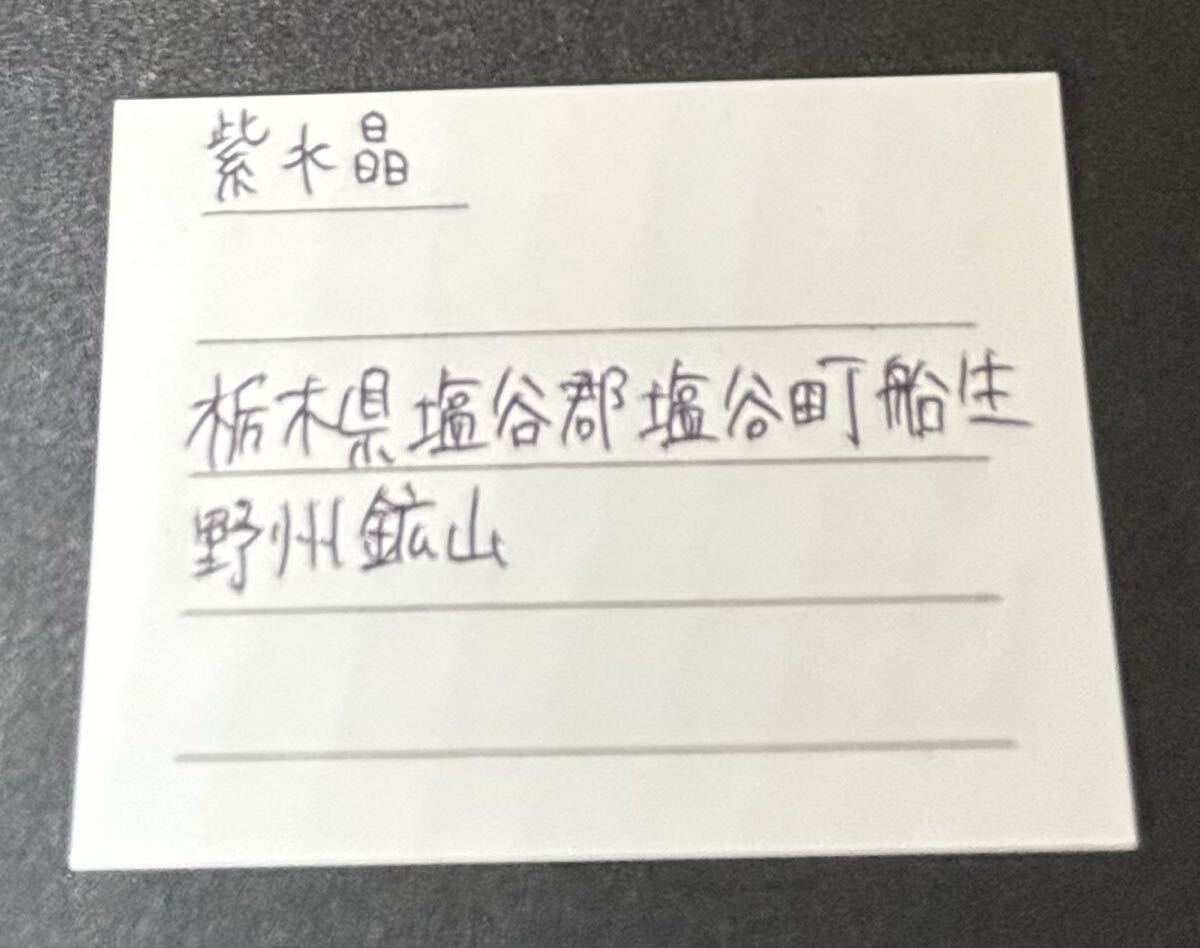 紫水晶
栃木県塩谷郡塩谷町船生
野州鉱山